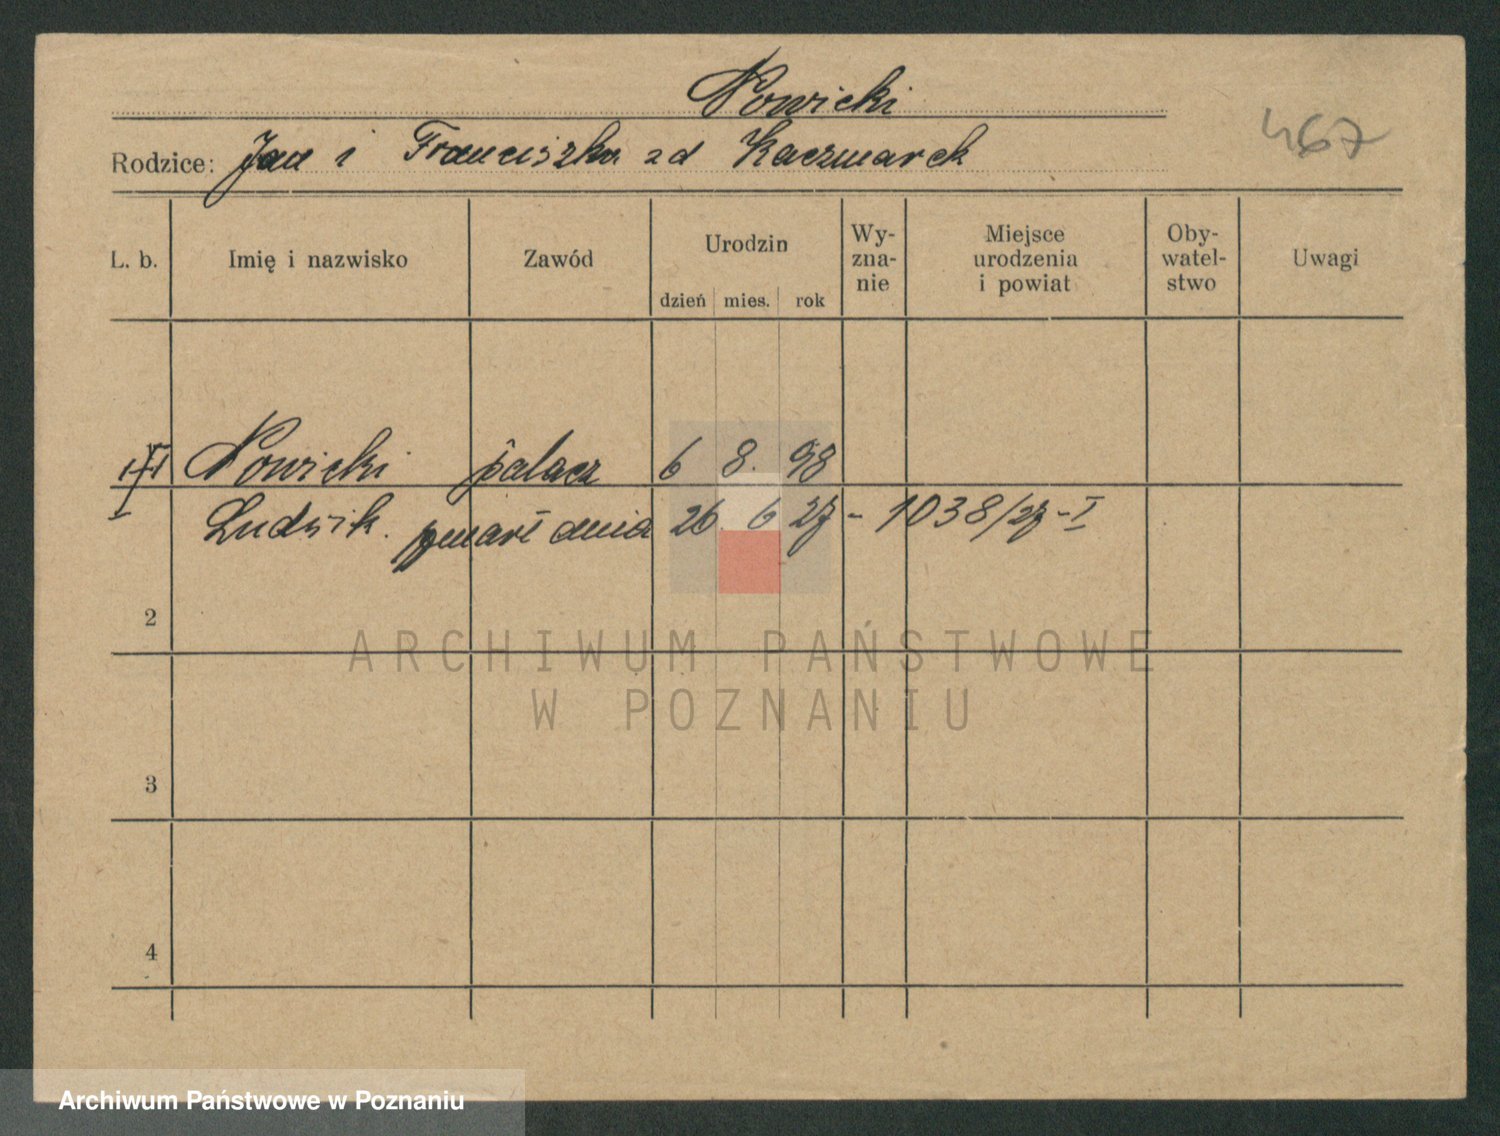 Nowicki
467
Rodzice: Jan i Franciszka zd Kaczmarek
L. b. Imię i nazwisko Zawód Urodzin dzień mies. rok Wy-zna-nie Miejsce urodzenia i powiat Oby-watel-stwo Uwagi
Nowicki palacz 6 8. 98
Ludwik. zmarł dnia 26. 6 27 - 1038/27 - I
2
ARCHIWUM PAŃSTWOWE
W POZNANIU
3
4
Archiwum Państwowe w Poznaniu